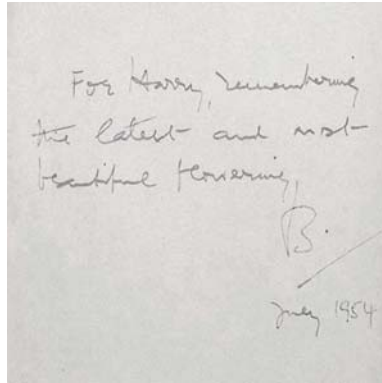 For Harry, remembering
the latest and most
beautiful flowering,
B.
July 1954